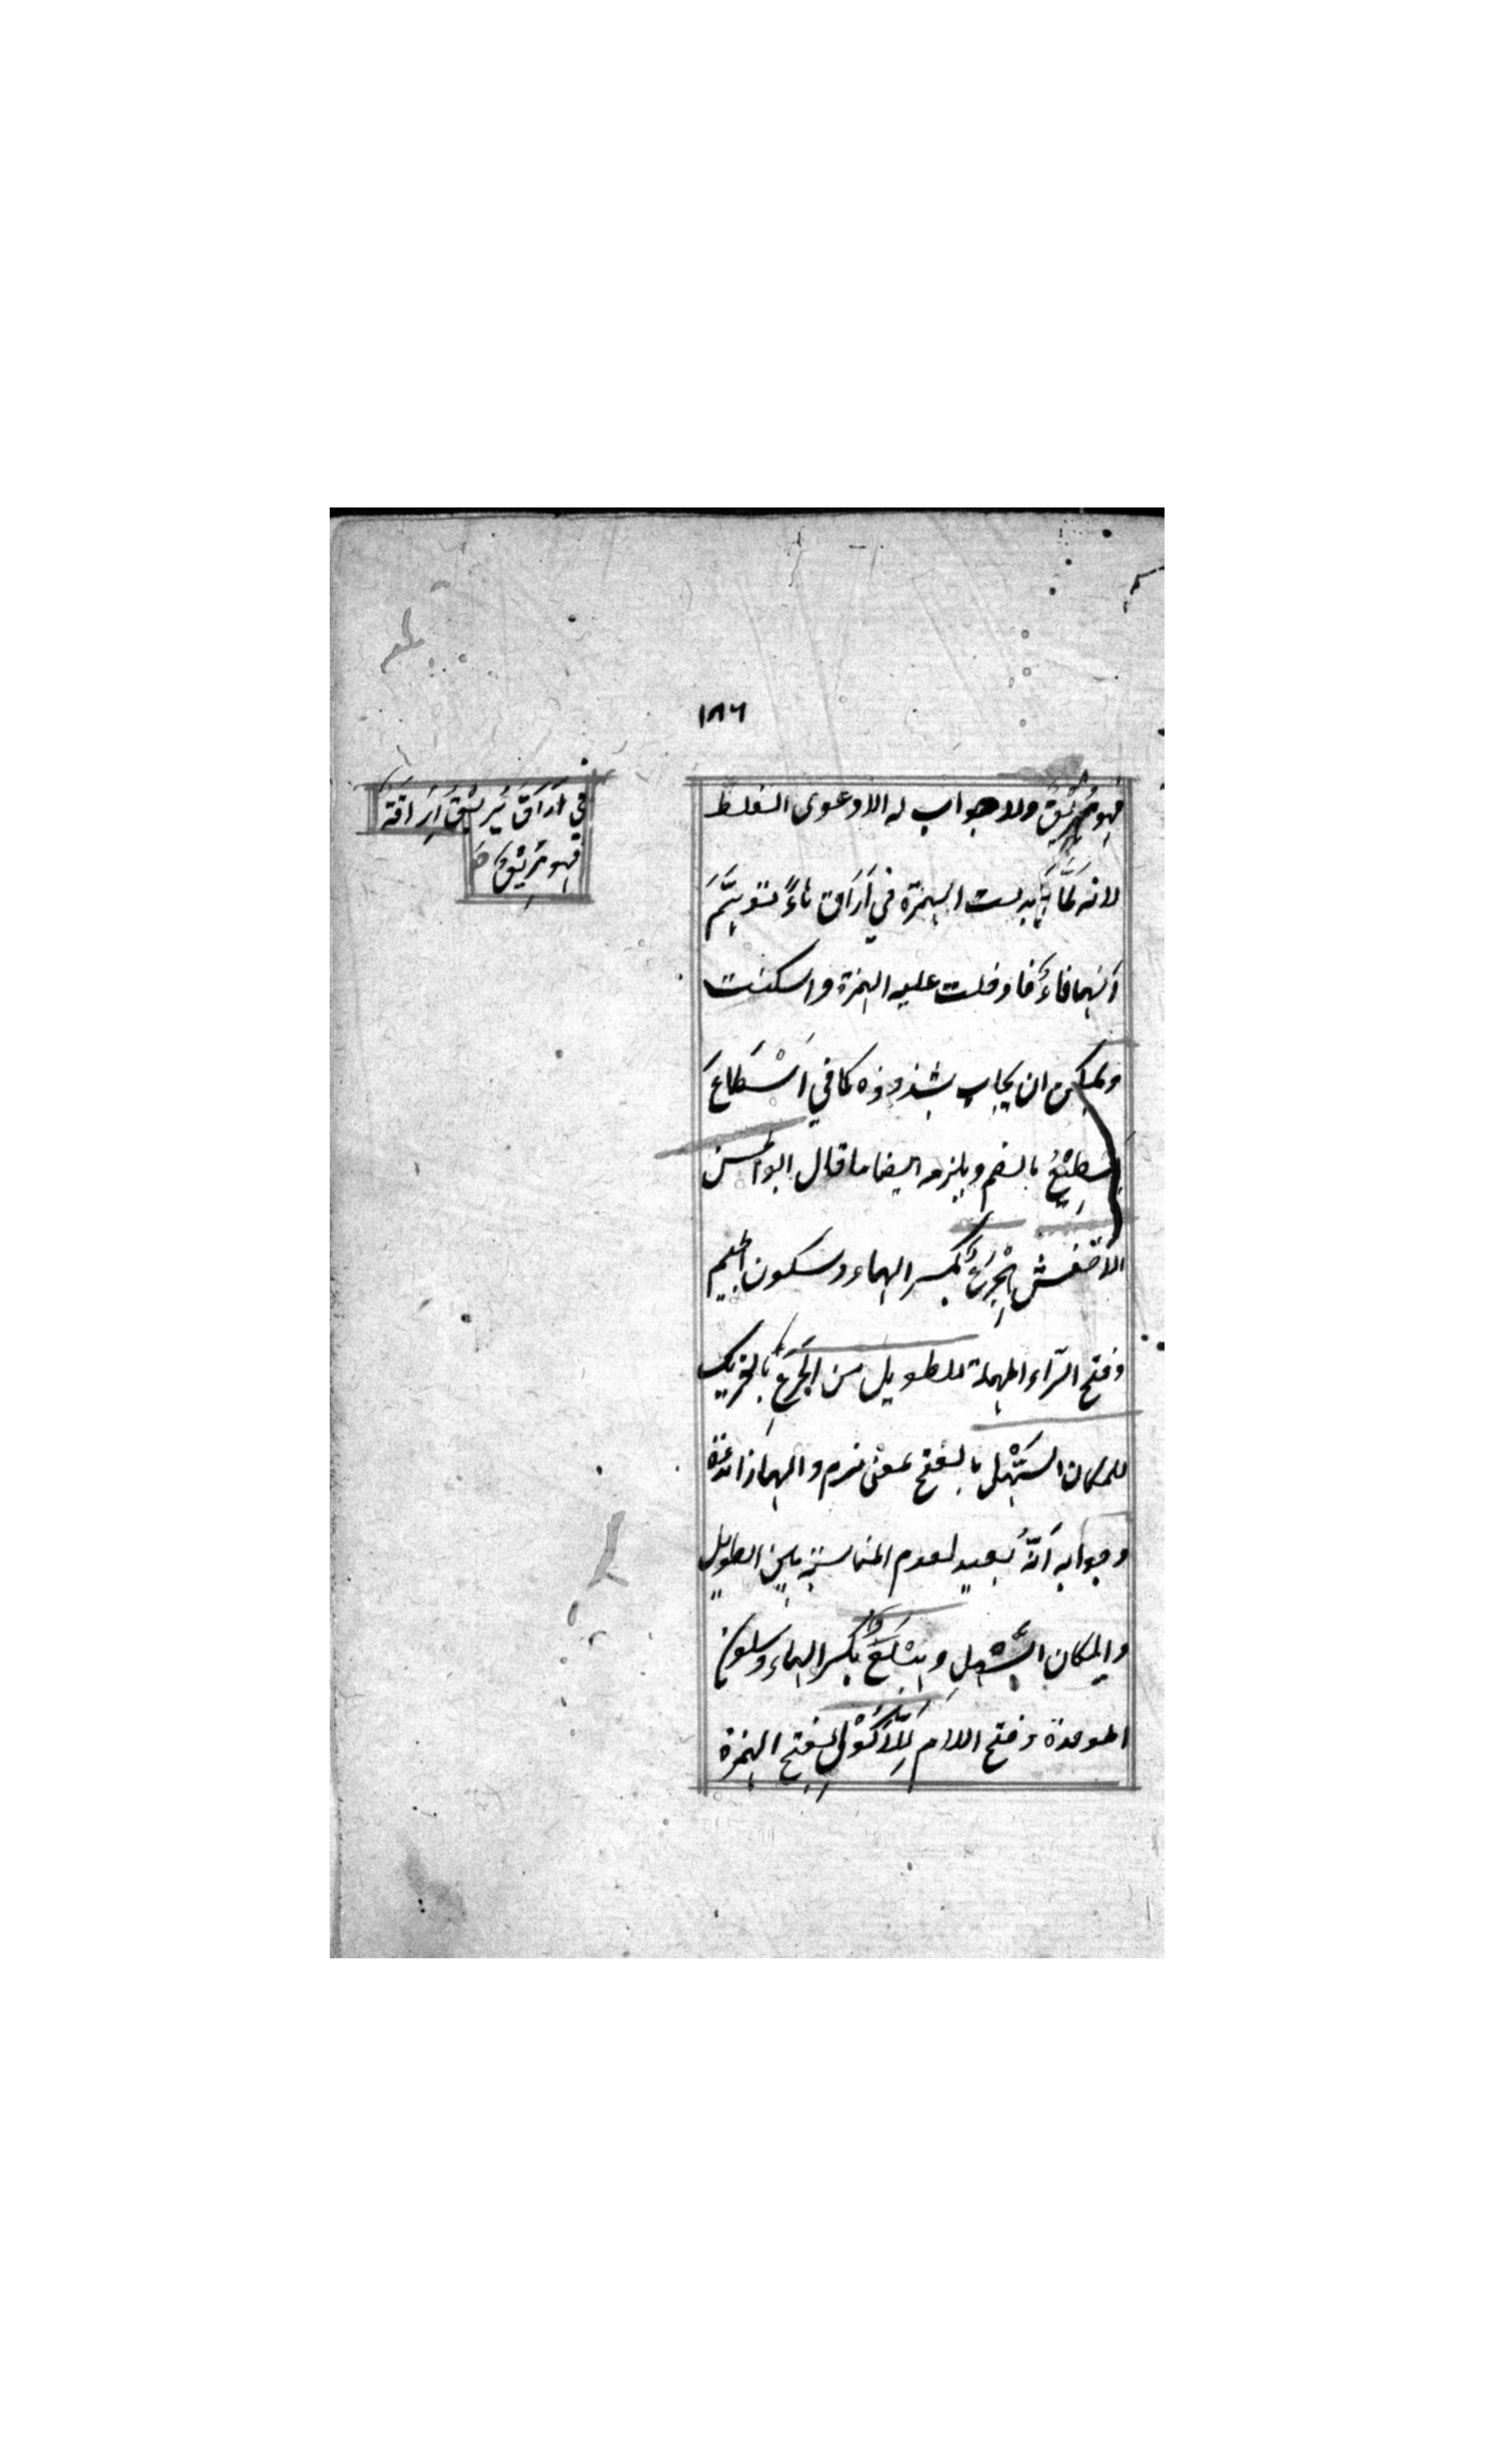 ١٨٦
فهو مُهَرِيْقٌ ولا جواب له الا دعوى الغلط
لانه لَمَّا ابدلت الهمزة في اَرَاقَ هاءً تُوُهِّمَ
اَنّها فاءٌ فادخلت عليه الهمزة واسكنت
ويمكن ان يجاب بشذوذه كما في اَسْطَاعَ
يُسْطِيْعُ بالضم ويلزمه ايضا ما قال ابو الحسن
الاخفش هِجْرَعٌ بكسر الهاء وسكون الجيم
وفتح الرّاء المهملة للطويل من الجَرَعِ بالتحريك
للمكان السَّهْلِ بالفتح بمعنى نرم والهاء زائدة
وجوابه اَنَّهُ بعيد لعدم المناسبة بين الطويل
والمكان السَّهْلِ وهِبْلَعٌ بكسر الهاء وسكون
الموحدة وفتح اللام لِلْاَكُوْلِ بفتح الهمزة
في اَرَاقَ يُرِيْقُ اِرَاقَةً
فهو مُرِيْقٌ